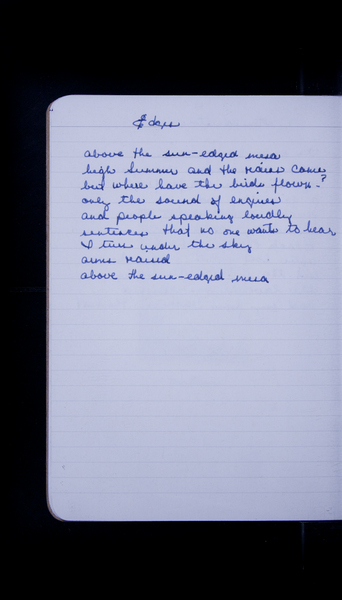 above the sun-edged mesa
high summer and the rains came
but where have the birds flown?
only the sound of engines
and people speaking loudly
sentences that no one wants to hear
I turn under the sky
arms raised
above the sun-edged mesa